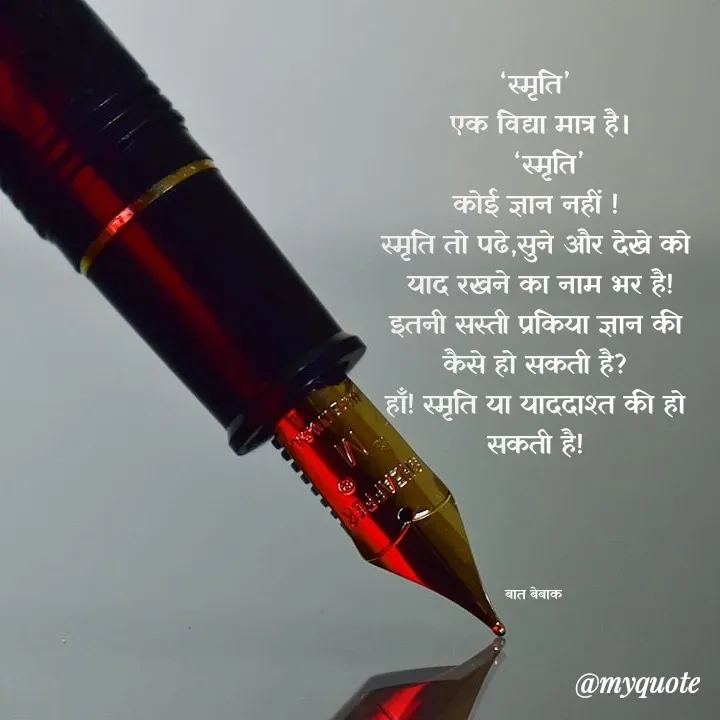 ‘स्मृति’
एक विद्या मात्र है।
‘स्मृति’
कोई ज्ञान नहीं !
स्मृति तो पढे,सुने और देखे को
याद रखने का नाम भर है!
इतनी सस्ती प्रकिया ज्ञान की
कैसे हो सकती है?
हाँ! स्मृति या याददाश्त की हो
सकती है!
SHEAFFER
®
M
बात बेबाक
@myquote